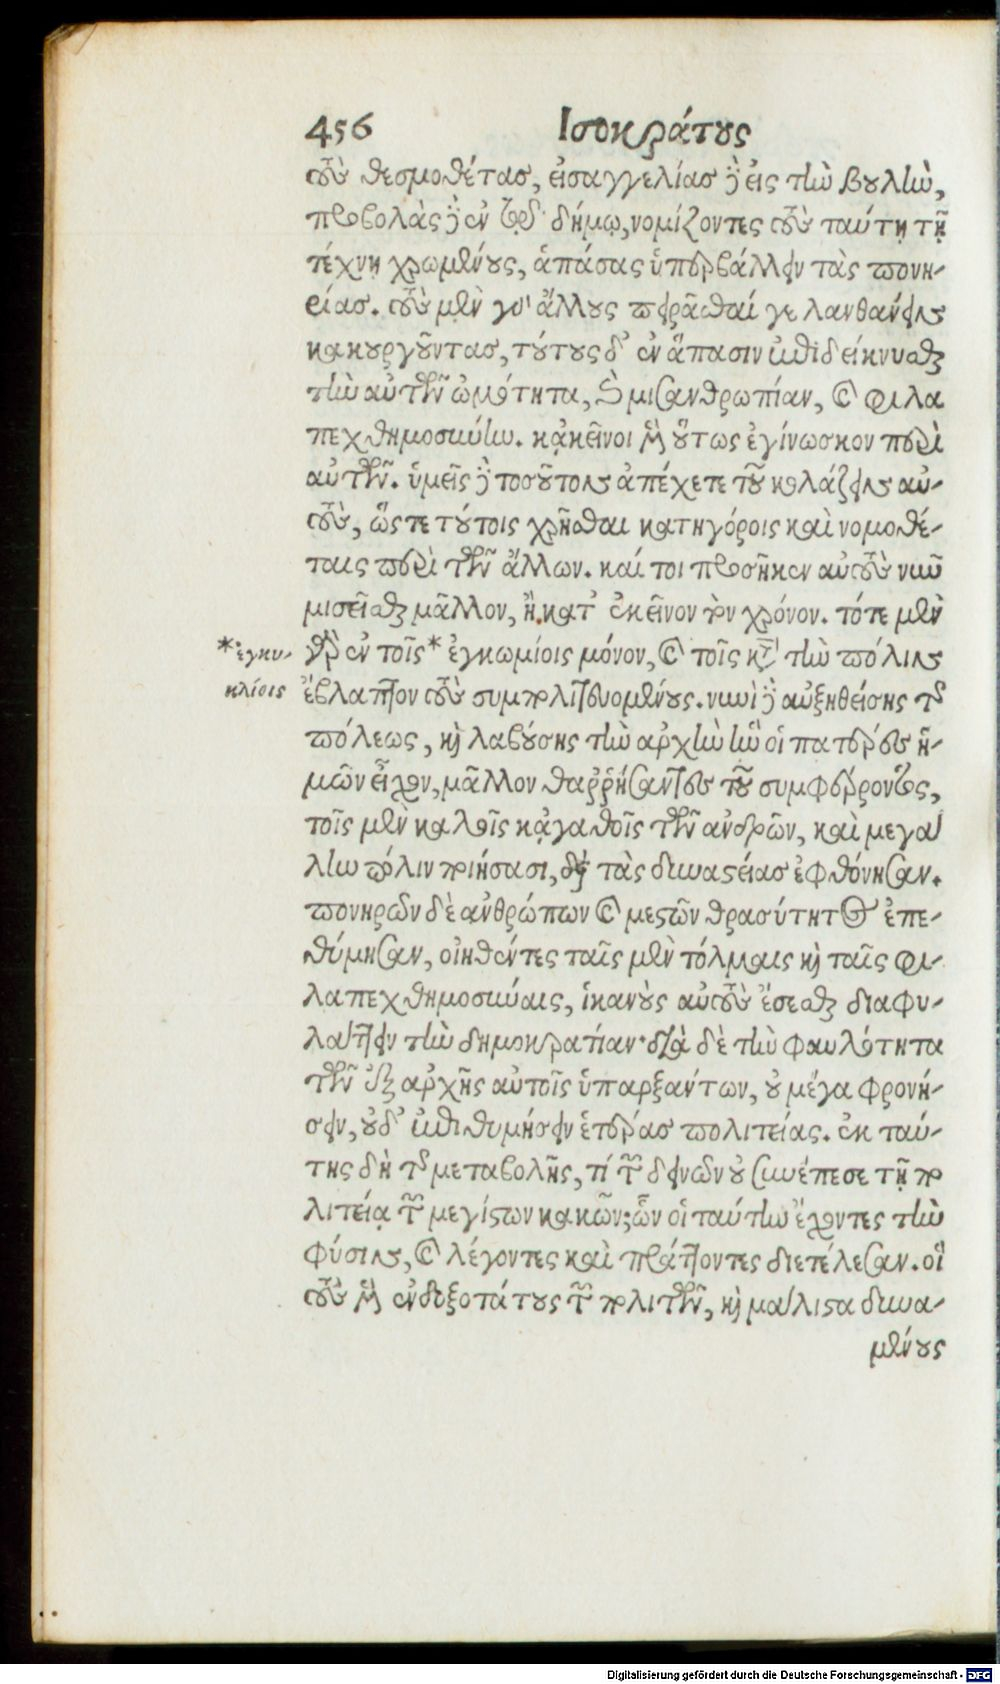 456 Ἰσοκράτους
τοὺς θεσμοθέτας, εἰσαγγελίας δ' εἰς τὴν βουλὴν,
προβολὰς δ' ἐν τῷ δήμῳ, νομίζοντες τοὺς ταύτῃ τῇ
τέχνῃ χρωμένους, ἁπάσας ὑπερβάλλειν τὰς πονη-
ρίας. τοὺς μὲν γὰρ ἄλλους πειρᾶσθαί γε λανθάνειν
κακουργοῦντας, τούτους δ' ἐν ἅπασιν ἐπιδείκνυσθαι
τὴν αὑτῶν ὠμότητα, καὶ μισανθρωπίαν, καὶ φιλα
πεχθημοσύνην. κᾀκεῖνοι μὲν οὕτως ἐγίνωσκον περὶ
αὐτῶν. ὑμεῖς δὲ τοσοῦτον ἀπέχετε τοῦ κολάζειν αὐ-
τοὺς, ὥστε τούτοις χρῆσθαι κατηγόροις καὶ νομοθέ-
ταις περὶ τῶν ἄλλων. καί τοι προσῆκεν αὐτοὺς νῦν
μισεῖσθαι μᾶλλον, ἢ κατ' ἐκεῖνον τὸν χρόνον. τότε μὲν
γὰρ ἐν τοῖς * ἐγκωμίοις μόνον, καὶ τοῖς κατὰ τὴν πόλιν
*ἐγκυ-
κλίοις
ἔβλαπτον τοὺς συμπολιτευομένους. νυνὶ δὲ αὐξηθείσης τῆς
πόλεως, καὶ λαβούσης τὴν ἀρχὴν ἣν οἱ πατέρες ἡ-
μῶν εἶχον, μᾶλλον θαῤῥήσαντες τοῦ συμφέροντος,
τοῖς μὲν καλοῖς κᾀγαθοῖς τῶν ἀνδρῶν, καὶ μεγά
λην πόλιν ποιήσασι, διὰ τὰς δυναστείας ἐφθόνησαν.
πονηρῶν δὲ ἀνθρώπων καὶ μεστῶν θρασύτητος ἐπε-
θύμησαν, οἰηθέντες ταῖς μὲν τόλμαις καὶ ταῖς φι-
λαπεχθημοσύναις, ἱκανοὺς αὐτοὺς ἔσεσθαι διαφυ-
λάττειν τὴν δημοκρατίαν· διὰ δὲ τὴν φαυλότητα
τῶν ἐξ ἀρχῆς αὐτοῖς ὑπαρξάντων, οὐ μέγα φρονή-
σειν, οὐδ' ἐπιθυμήσειν ἑτέρας πολιτείας. ἐκ ταύ-
της δὴ τῆς μεταβολῆς, τί τῶν δεινῶν οὐ συνέπεσε τῇ πο
λιτείᾳ τῶν μεγίστων κακῶν; ὧν οἱ ταύτην ἔχοντες τὴν
φύσιν, καὶ λέγοντες καὶ πράττοντες διετέλεσαν. οἳ
τοὺς μὲν ἐνδοξοτάτους τῶν πολιτῶν, καὶ μάλιστα δυνα-
μένους
Digitalisierung gefördert durch die Deutsche Forschungsgemeinschaft - DFG